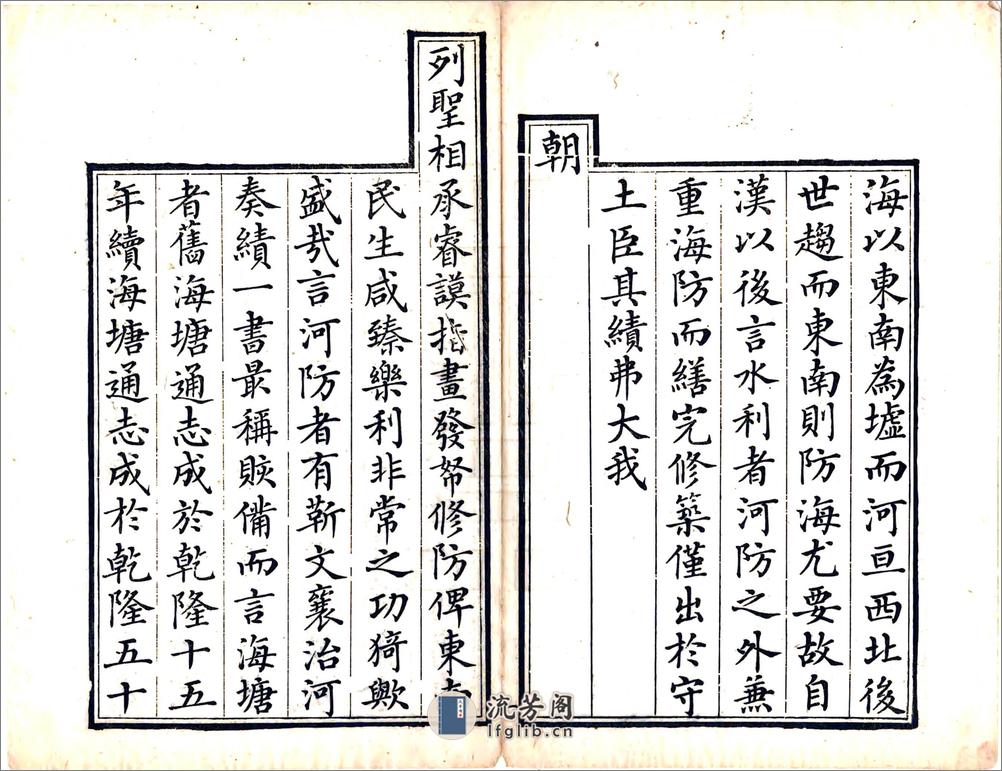 海以東南為墟而河亘西北後
世趨而東南則防海尤要故自
漢以後言水利者河防之外兼
重海防而繕完修築僅出於守
土臣其績弗大我
朝
列聖相承睿謨指畫發帑修防俾東南
民生咸臻樂利非常之功猗歟
盛哉言河防者有靳文襄治河
奏績一書最稱賅備而言海塘
者舊海塘通志成於乾隆十五
年續海塘通志成於乾隆五十
流芳阁
lfglib.cn